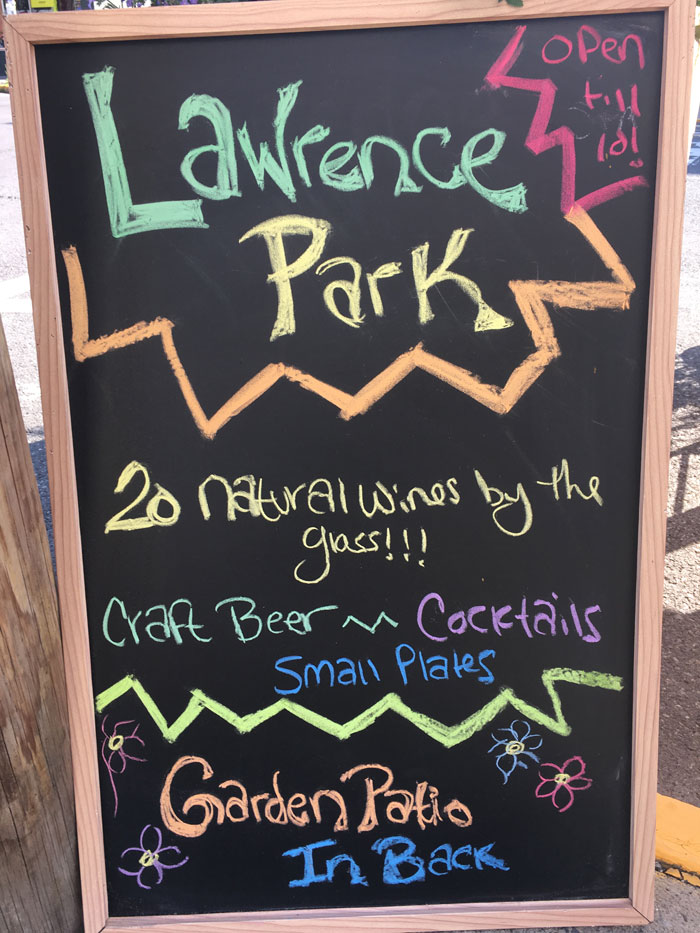 Open
till
10!
Lawrence
Park
20 natural wines by the
glass!!!
Craft Beer ~ Cocktails
Small Plates
Garden Patio
In Back